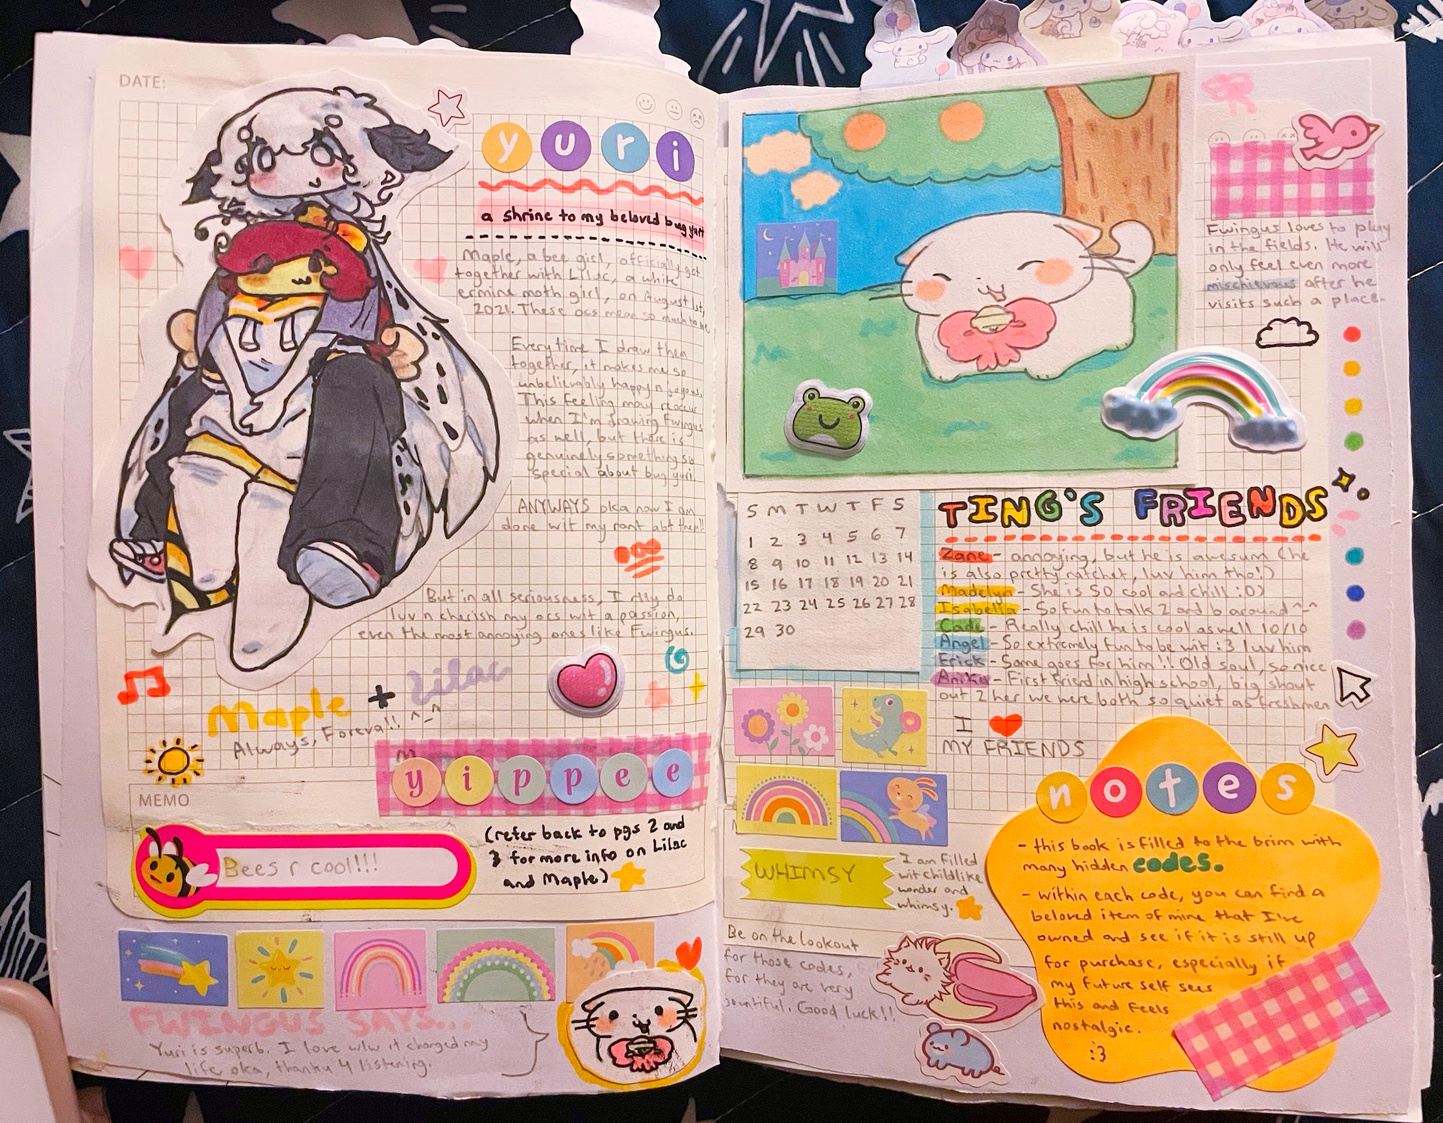 DATE:
yuri
a shrine to my beloved bug yuri
Maple, a bee girl, officially got
together with Lilac, a white
ermine moth girl, on August 1st,
2021. These ocs mean so much to me
Everytime I draw them
together, it makes me so
unbelievably happy n joyous.
This feeling may reoccur
when I'm drawing Fwingus
as well, but there is
genuinely something so
special about bug yuri.
ANYWAYS oka now I am
done wit my rant abt them!!
100
But in all seriousness, I rlly do
luv n cherish my ocs wit a passion,
even the most annoying ones like Fwingus.
Maple + Lilac
Always, Foreva!! ^-^
yippee
MEMO
Bees r cool!!!
(refer back to pgs 2 and
3 for more info on Lilac
and Maple)
FWINGUS SAYS...
Yuri is superb. I love wlw it changed my
life oka, thanku 4 listening.
Fwingus loves to play
in the fields. He will
only feel even more
mischievous after he
visits such a place.
S M T W T F S
1 2 3 4 5 6 7
8 9 10 11 12 13 14
15 16 17 18 19 20 21
22 23 24 25 26 27 28
29 30
TING'S FRIENDS
Zane - annoying, but he is awesum (he
is also pretty ratchet, luv him tho!)
Madelyn - She is SO cool and chill :D)
Isabella - So fun to talk 2 and b around ^-^
Cade - Really chill he is cool as well 10/10
Angel - So extremely fun to be wit :3 luv him
Erick - Same goes for him!! Old soul, so nice
Anika - First friend in high school, big shout
out 2 her we were both so quiet as freshmen
I
MY FRIENDS
WHIMSY
I am filled
wit childlike
wonder and
whimsy.
Be on the lookout
for those codes,
for they are very
bountiful. Good luck!!
notes
- this book is filled to the brim with
many hidden codes.
- within each code, you can find a
beloved item of mine that I've
owned and see if it is still up
for purchase, especially if
my future self sees
this and feels
nostalgic.
:3